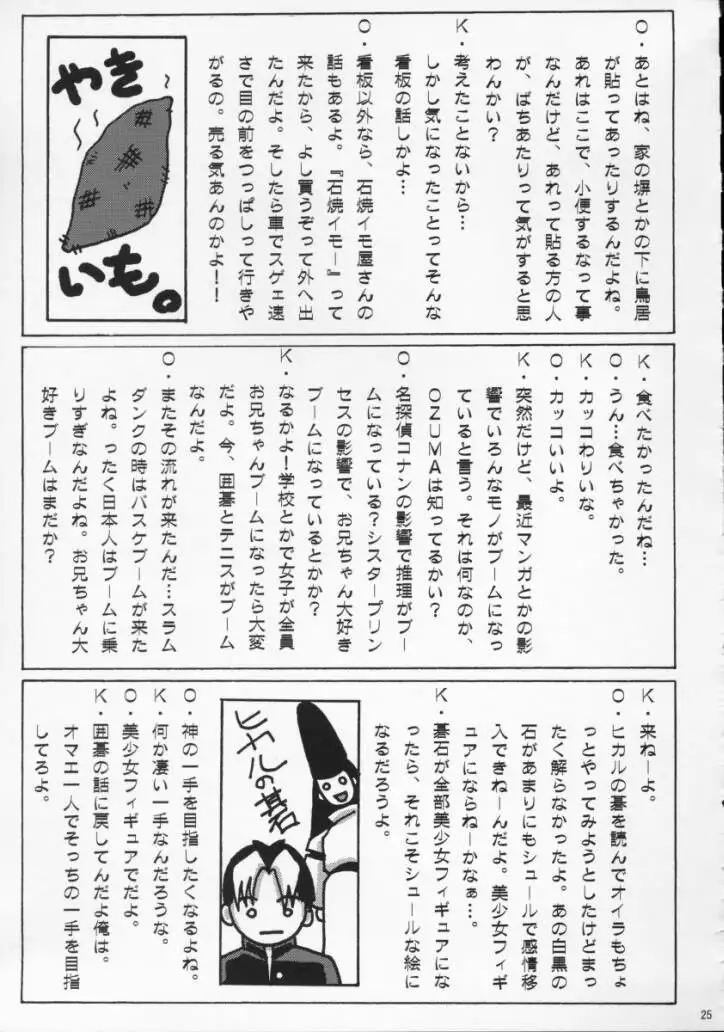 O・あとはね、家の塀とかの下に鳥居
が貼ってあったりするんだよね。
あれはここで、小便するなって事
なんだけど、あれって貼る方の人
が、ばちあたりって気がすると思
わんかい？
K・考えたことないから…
しかし気になったことってそんな
看板の話しかよ…
O・看板以外なら、石焼イモ屋さんの
話もあるよ。『石焼イモー』って
来たから、よし買うぞって外へ出
たんだよ。そしたら車でスゲェ速
さで目の前をつっぱしって行きや
がるの。売る気あんのかよ！
やき
いも。
K・食べたかったんだね…
O・うん…食べちゃかった。
K・カッコわりいな。
O・カッコいいよ。
K・突然だけど、最近マンガとかの影
響でいろんなモノがブームになっ
ていると言う。それは何なのか、
OZUMAは知ってるかい？
O・名探偵コナンの影響で推理がブー
ムになっている？シスタープリン
セスの影響で、お兄ちゃん大好き
ブームになっているとかか？
K・なるかよ！学校とかで女子が全員
お兄ちゃんブームになったら大変
だよ。今、囲碁とテニスがブーム
なんだよ。
O・またその流れが来たんだ…スラム
ダンクの時はバスケブームが来た
よね。ったく日本人はブームに乗
りすぎなんだよね。お兄ちゃん大
好きブームはまだか？
K・来ねーよ。
O・ヒカルの碁を読んでオイラもちょ
っとやってみようとしたけどまっ
たく解らなかったよ。あの白黒の
石があまりにもシュールで感情移
入できねーんだよ。美少女フィギ
ュアにならねーかなぁ…。
K・碁石が全部美少女フィギュアにな
ったら、それこそシュールな絵に
なるだろうよ。
ヒカルの碁
O・神の一手を目指したくなるよね。
K・何か凄い一手なんだろうな。
O・美少女フィギュアでだよ。
K・囲碁の話に戻してんだよ俺は。
オマエ一人でそっちの一手を目指
してろよ。
25